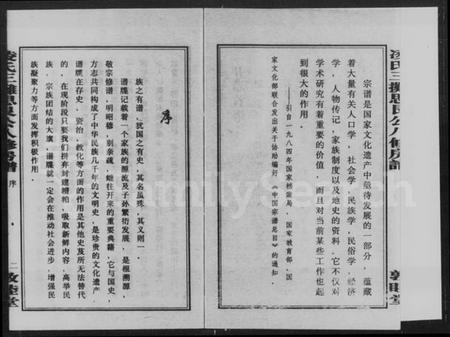 宗谱是国家文化遗产中亟待发展的一部分，蕴藏
着大量有关人口学、社会学、民族学、民俗学、经济
学、人物传记、家族制度以及地史的资料，它不仅对
学术研究有着重要的价值，而且对当前某些工作也起
到很大的作用。
——引自一九八四年国家档案局，国家教育部，国
家文化部联合发出关于协助编好《中国家谱总目》的通知。
敦睦堂
序
族之有谱，犹国之有史，其名虽殊，其义则一。
谱牒记载着一个家族的源流及子孙繁衍发展，是根溯源，
敬宗修谱，明昭穆，别亲疏，继往开来的重要典籍，它与国史，
方志共同构成了中华民族几千年的文明史，是珍贵的文化遗产。
谱牒在存史、资治、教化等方面的作用是其他史及所无法替代
的，在现阶段只要我们摒弃封建糟粕，吸取新鲜内容，高举民
族、宗族团结的大旗，谱牒就一定会在推动社会进步，增强民
族凝聚力等方面发挥积极作用。
凌氏三摊思民公八修房谱
序
敦睦堂
FamilySearch